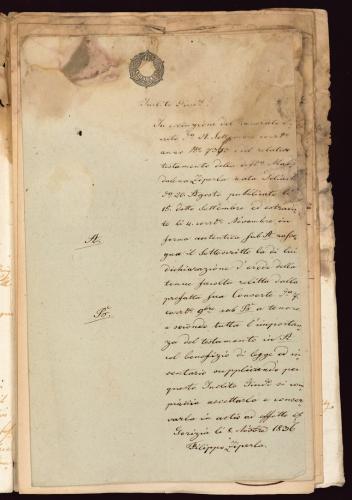 Inclito Giud.
In evasione del venerato De-
creto 11 Settembre corr.
anno N. 7393 e al relativo
testamento della def. Mad-
dalena Ziperlo nata
26 Agosto pubblicato li
15 detto Settembre ed estratto
li 4 corr. Novembre in
forma autentica sub A. rasse-
gna il Sottoscritto la di lui
dichiarazione d'erede della
tenue facoltà relitta dalla
prefatta sua Consorte
corr. sub B. a tenore
e secondo tutta l'importan-
za del testamento in A.
col benefizio di legge ed in-
ventario supplicando per
questo Inclito Giud. si com-
piaccia accettarla e conser-
varla in actis ad effetto
Gorizia li Nov. 1836
Filippo Ziperlo
A.
B.